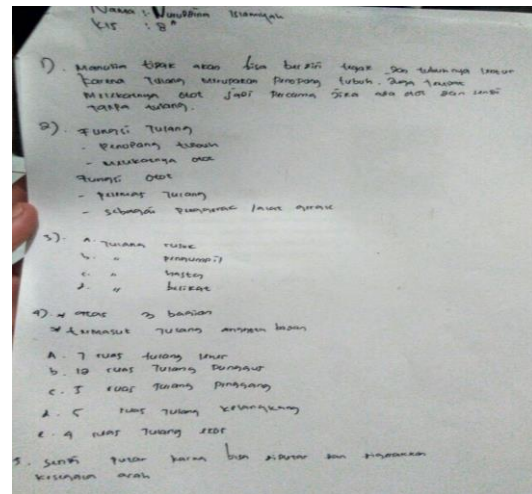 Nama : Nurufoina Islamiyah
Kls : 8A
1). Manusia tidak akan bisa berdiri tegak dan tubuhnya lentur
karena Tulang merupakan Penopang tubuh. Juga tempat
Melekatnya otot jadi percuma jika ada otot dan sendi
tanpa tulang.
2). Fungsi Tulang
- Penopang tubuh
- Melekatnya otot
Fungsi otot
- Pelekat Tulang
- sebagai Penggerak / alat gerak
3). a. Tulang rusuk
b. " Pengumpil
c. " hasta
d. " belikat
4). * atas 3 bagian
* termasuk Tulang anggota badan
A. 7 ruas tulang leher
b. 12 ruas Tulang Punggung
c. 5 ruas Tulang Pinggang
d. 5 ruas Tulang kelangkang
e. 4 ruas Tulang ekor
5. Sendi putar karna bisa diputar dan digerakkan
kesegala arah